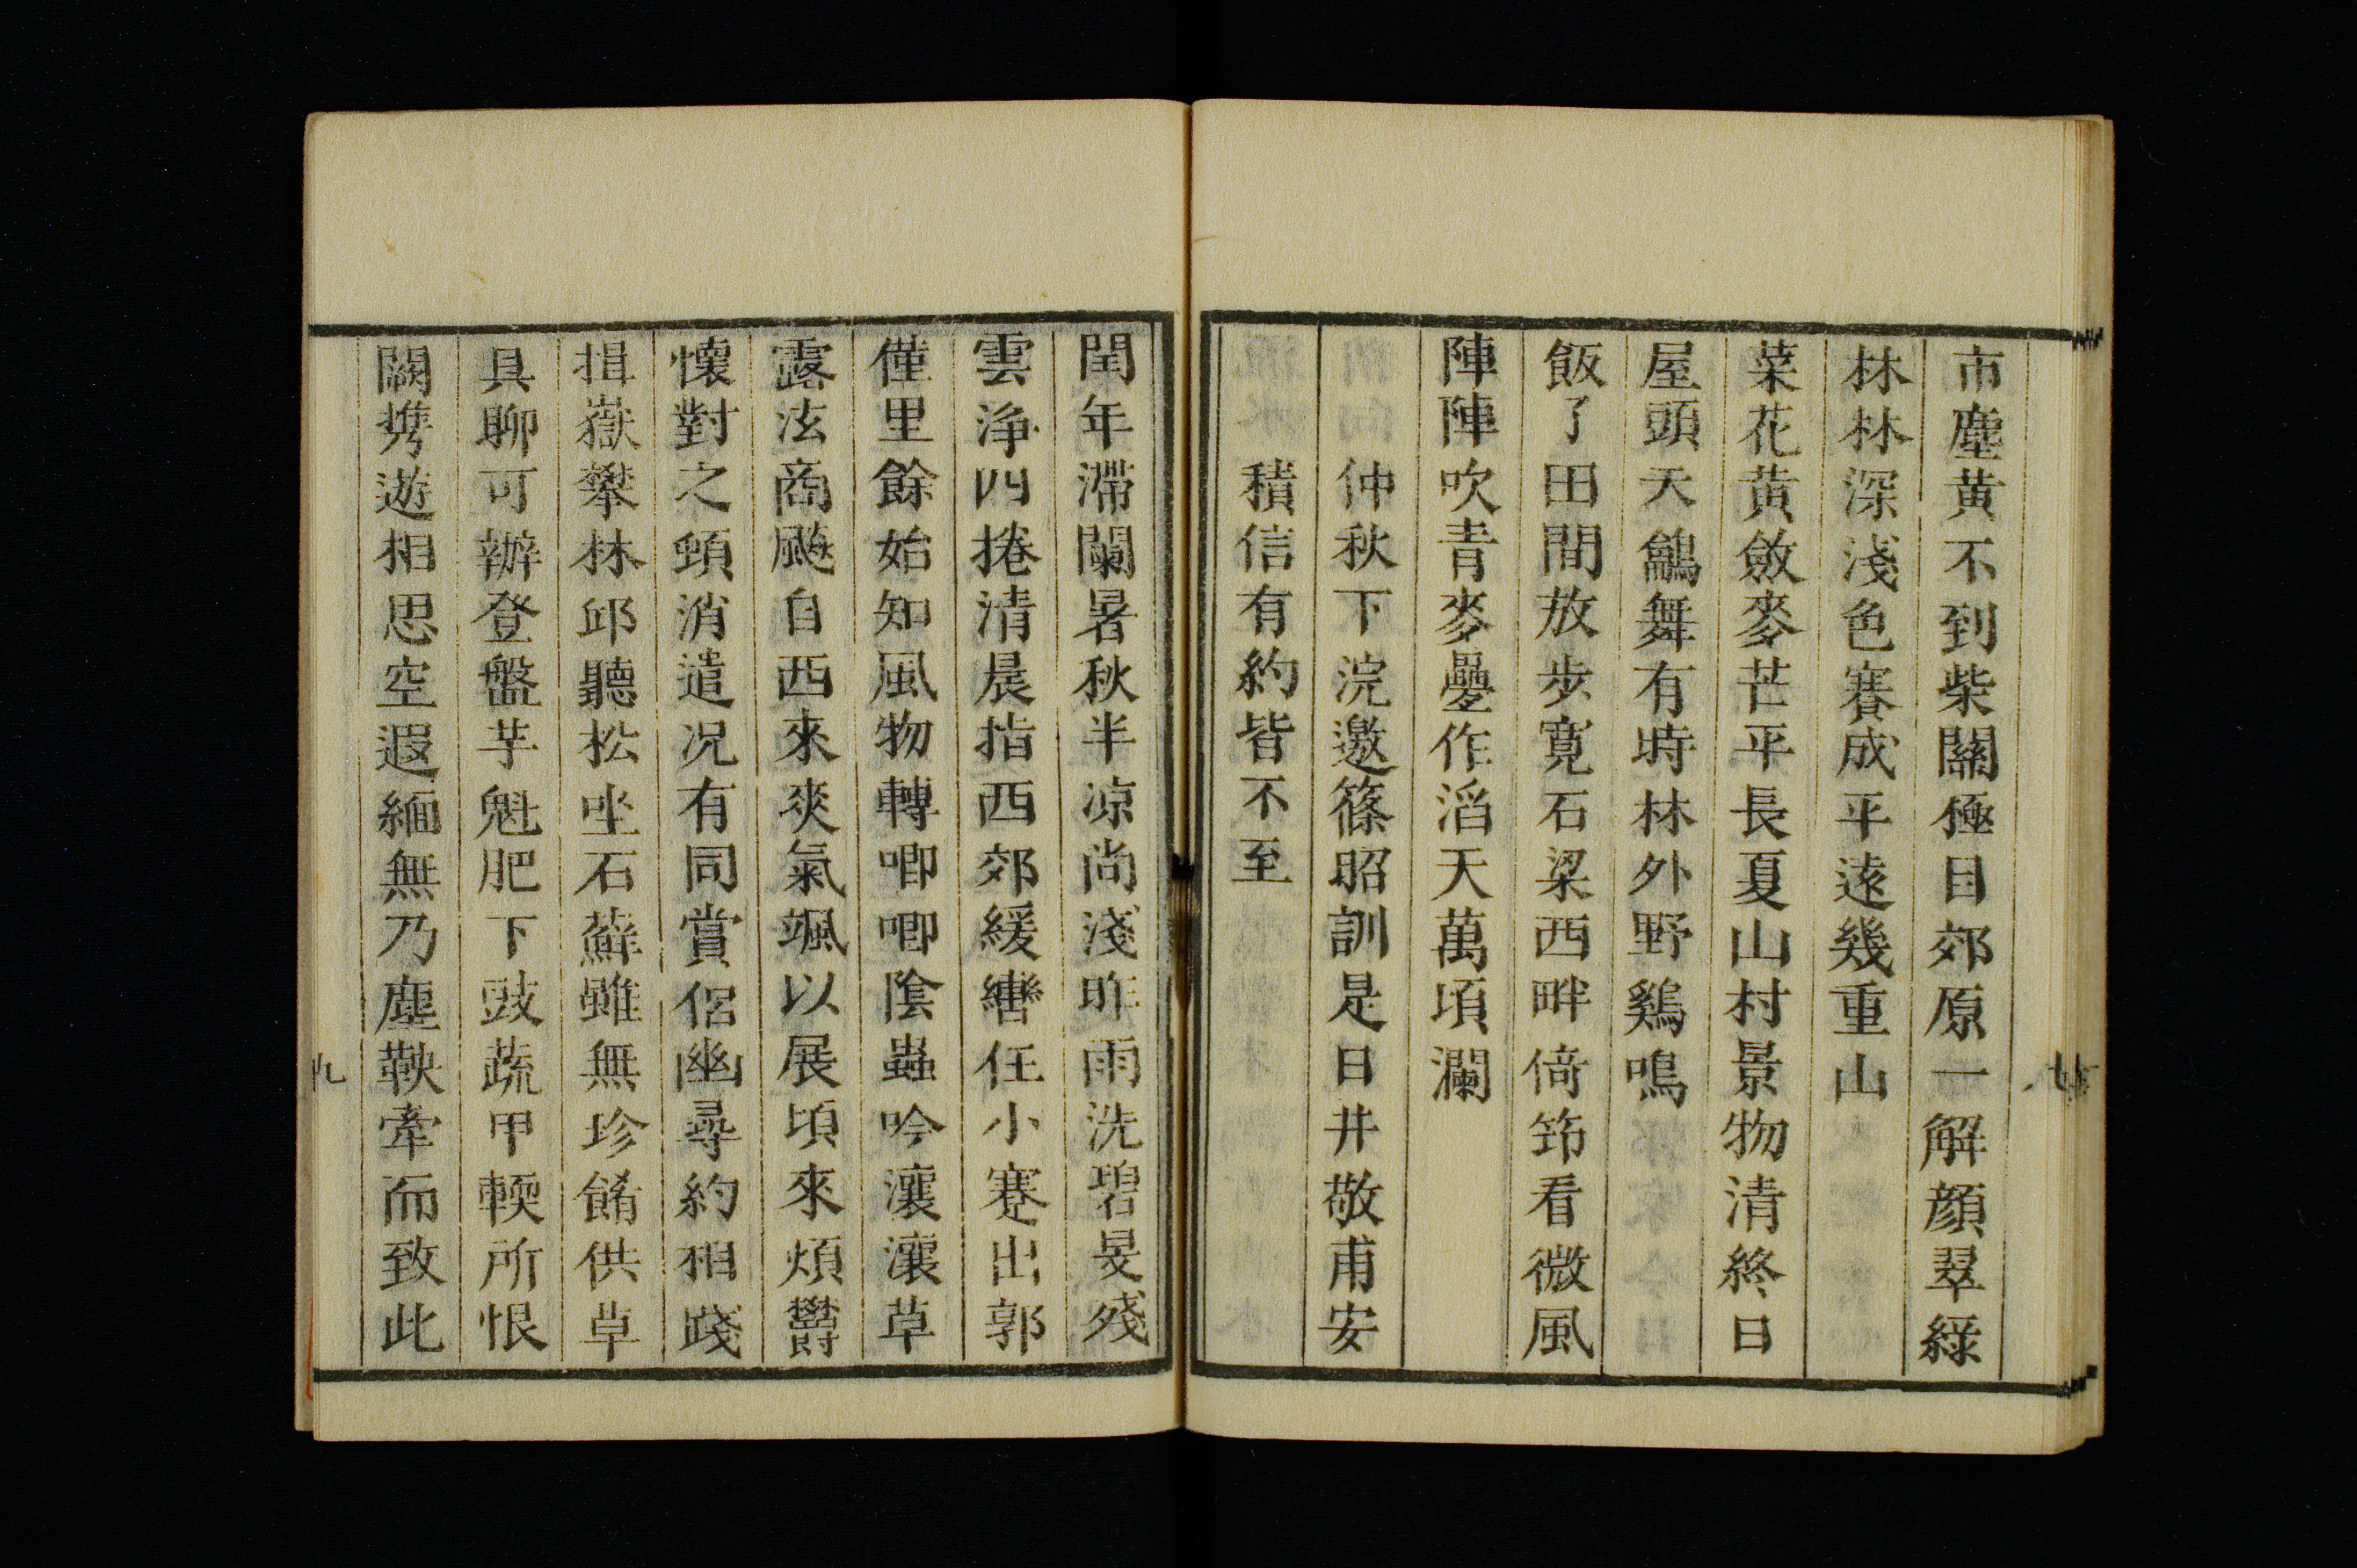 市塵黃不到柴關極目郊原一解顔翠綠
林林深淺色賽成平遠幾重山
菜花黃斂麥芒平長夏山村景物清終日
屋頭天鷂舞有時林外野鷄鳴
飯了田間放步寬石梁西畔倚筇看微風
陣陣吹青麥疊作滔天萬頃瀾
仲秋下浣邀篠昭訓是日井敬甫安
積信有約皆不至
閏年滯闌暑秋半凉尚淺昨雨洗碧旻殘
雲浄四捲清晨指西郊緩轡任小蹇出郭
僅里餘始知風物轉喞喞陰蟲吟瀼瀼草
露泫商飈自西來爽氣颯以展頃來煩鬱
懷對之頓消遣况有同賞侶幽尋約相踐
揖嶽攀林邱聽松坐石蘚雖無珍餚供草
具聊可辦登盤芋魁肥下豉蔬甲輭所恨
闕携遊相思空遐緬無乃塵鞅牽而致此
九